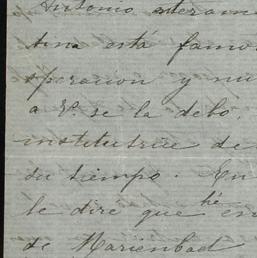 Antonio
tina está famo
speracion y mi
a Vd. se la debo.
institutriz de
su tiempo. En
le dire que hé en
de Marienbad